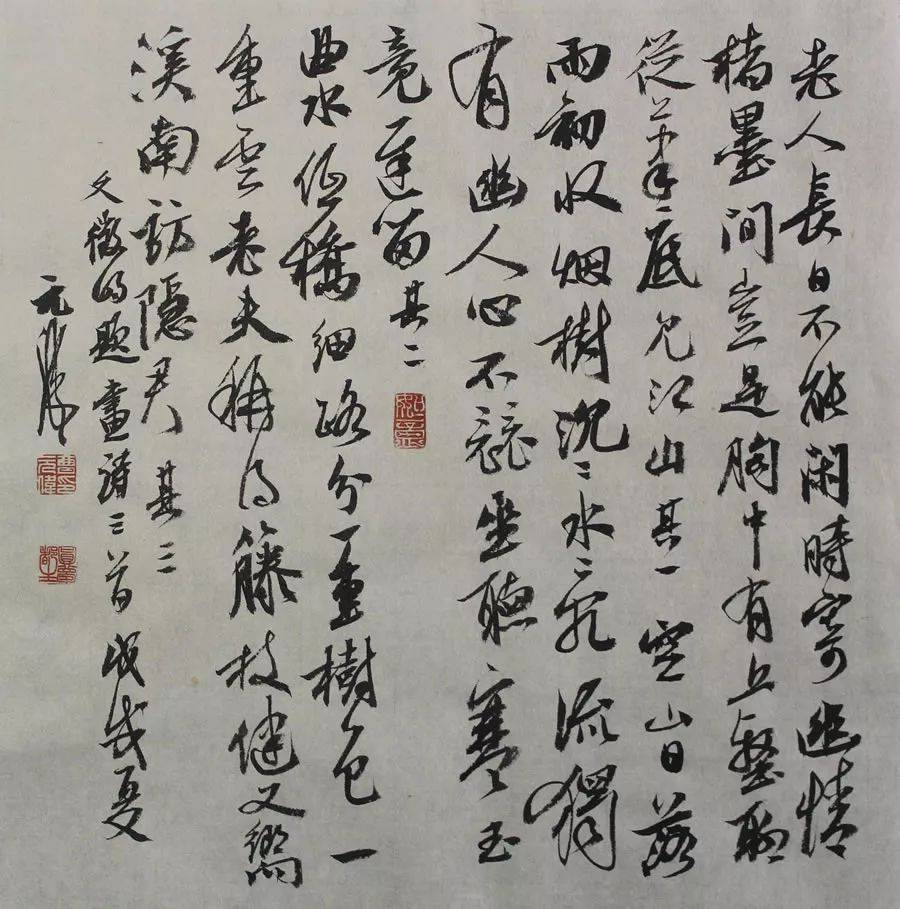 老人長日不能閑時寄幽情
楮墨間豈是胸中有丘壑聊
從筆底見江山其一 空山日落
雨初收烟樹沉〻水亂流獨
有幽人心不競坐聽寒玉
竟遲留 其二
曲水低橋細路分一重樹色一
重雲老夫稱得籐枝健又嚮
溪南訪隱君 其三
文徵明題畫詩三首 戊戌夏
元